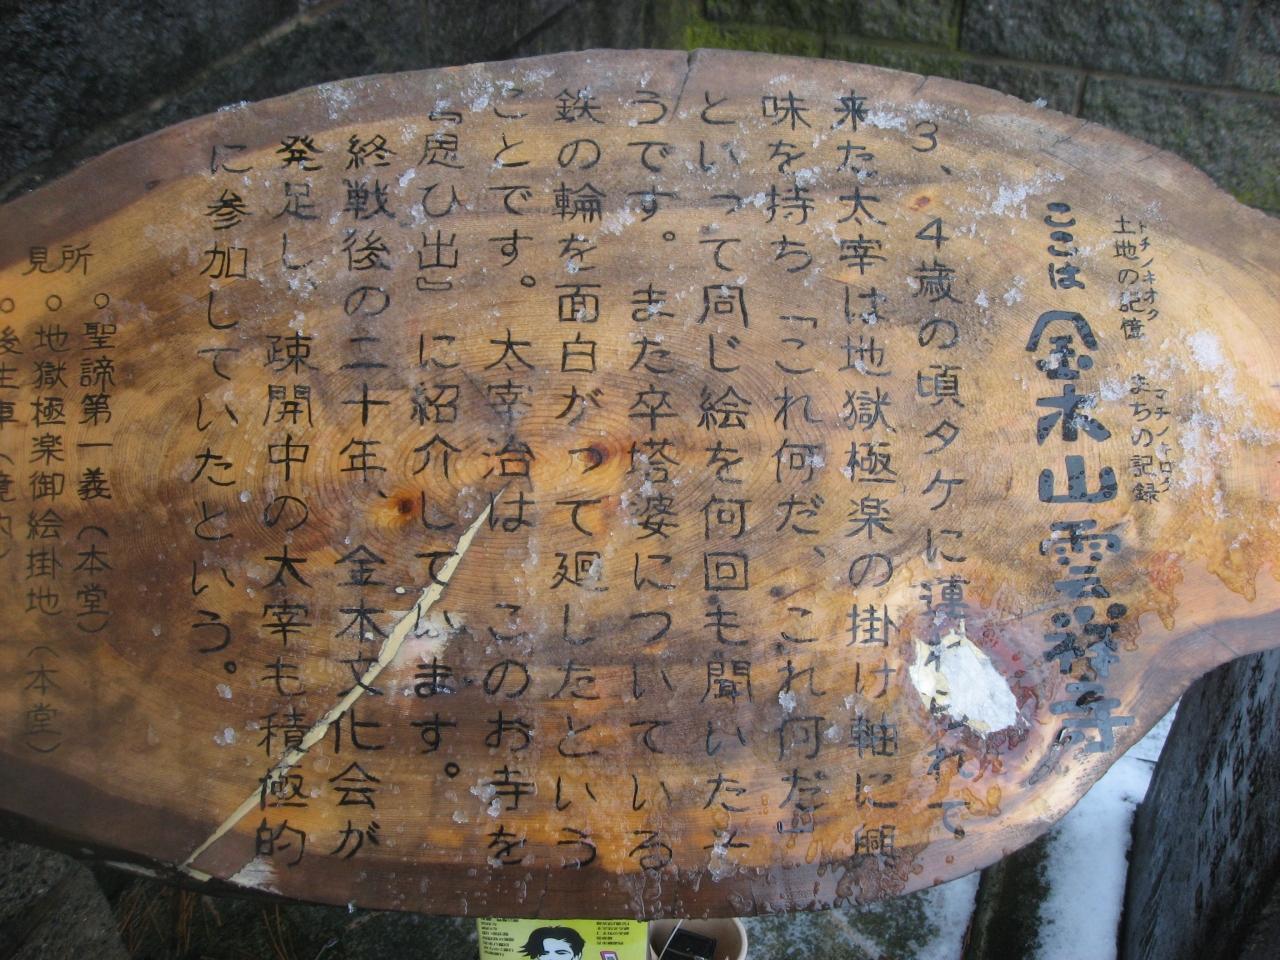 トチノキオク
土地の記憶
マチノキロク
まちの記録
ここは 金木山雲祥寺
3、4歳の頃タケに連れられて
来た太宰は地獄極楽の掛け軸に興
味を持ち「これ何だ、これ何だ」
といって同じ絵を何回も聞いたそ
うです。また卒塔婆についている
鉄の輪を面白がって廻したという
ことです。太宰治は このお寺を
『思ひ出』に紹介しています。
終戦後の二十年、金木文化会が
発足し、疎開中の太宰も積極的
に参加していたという。
所 。聖諦第一義（本堂）
見 。地獄極楽御絵掛地（本堂）
。後生車（境内）